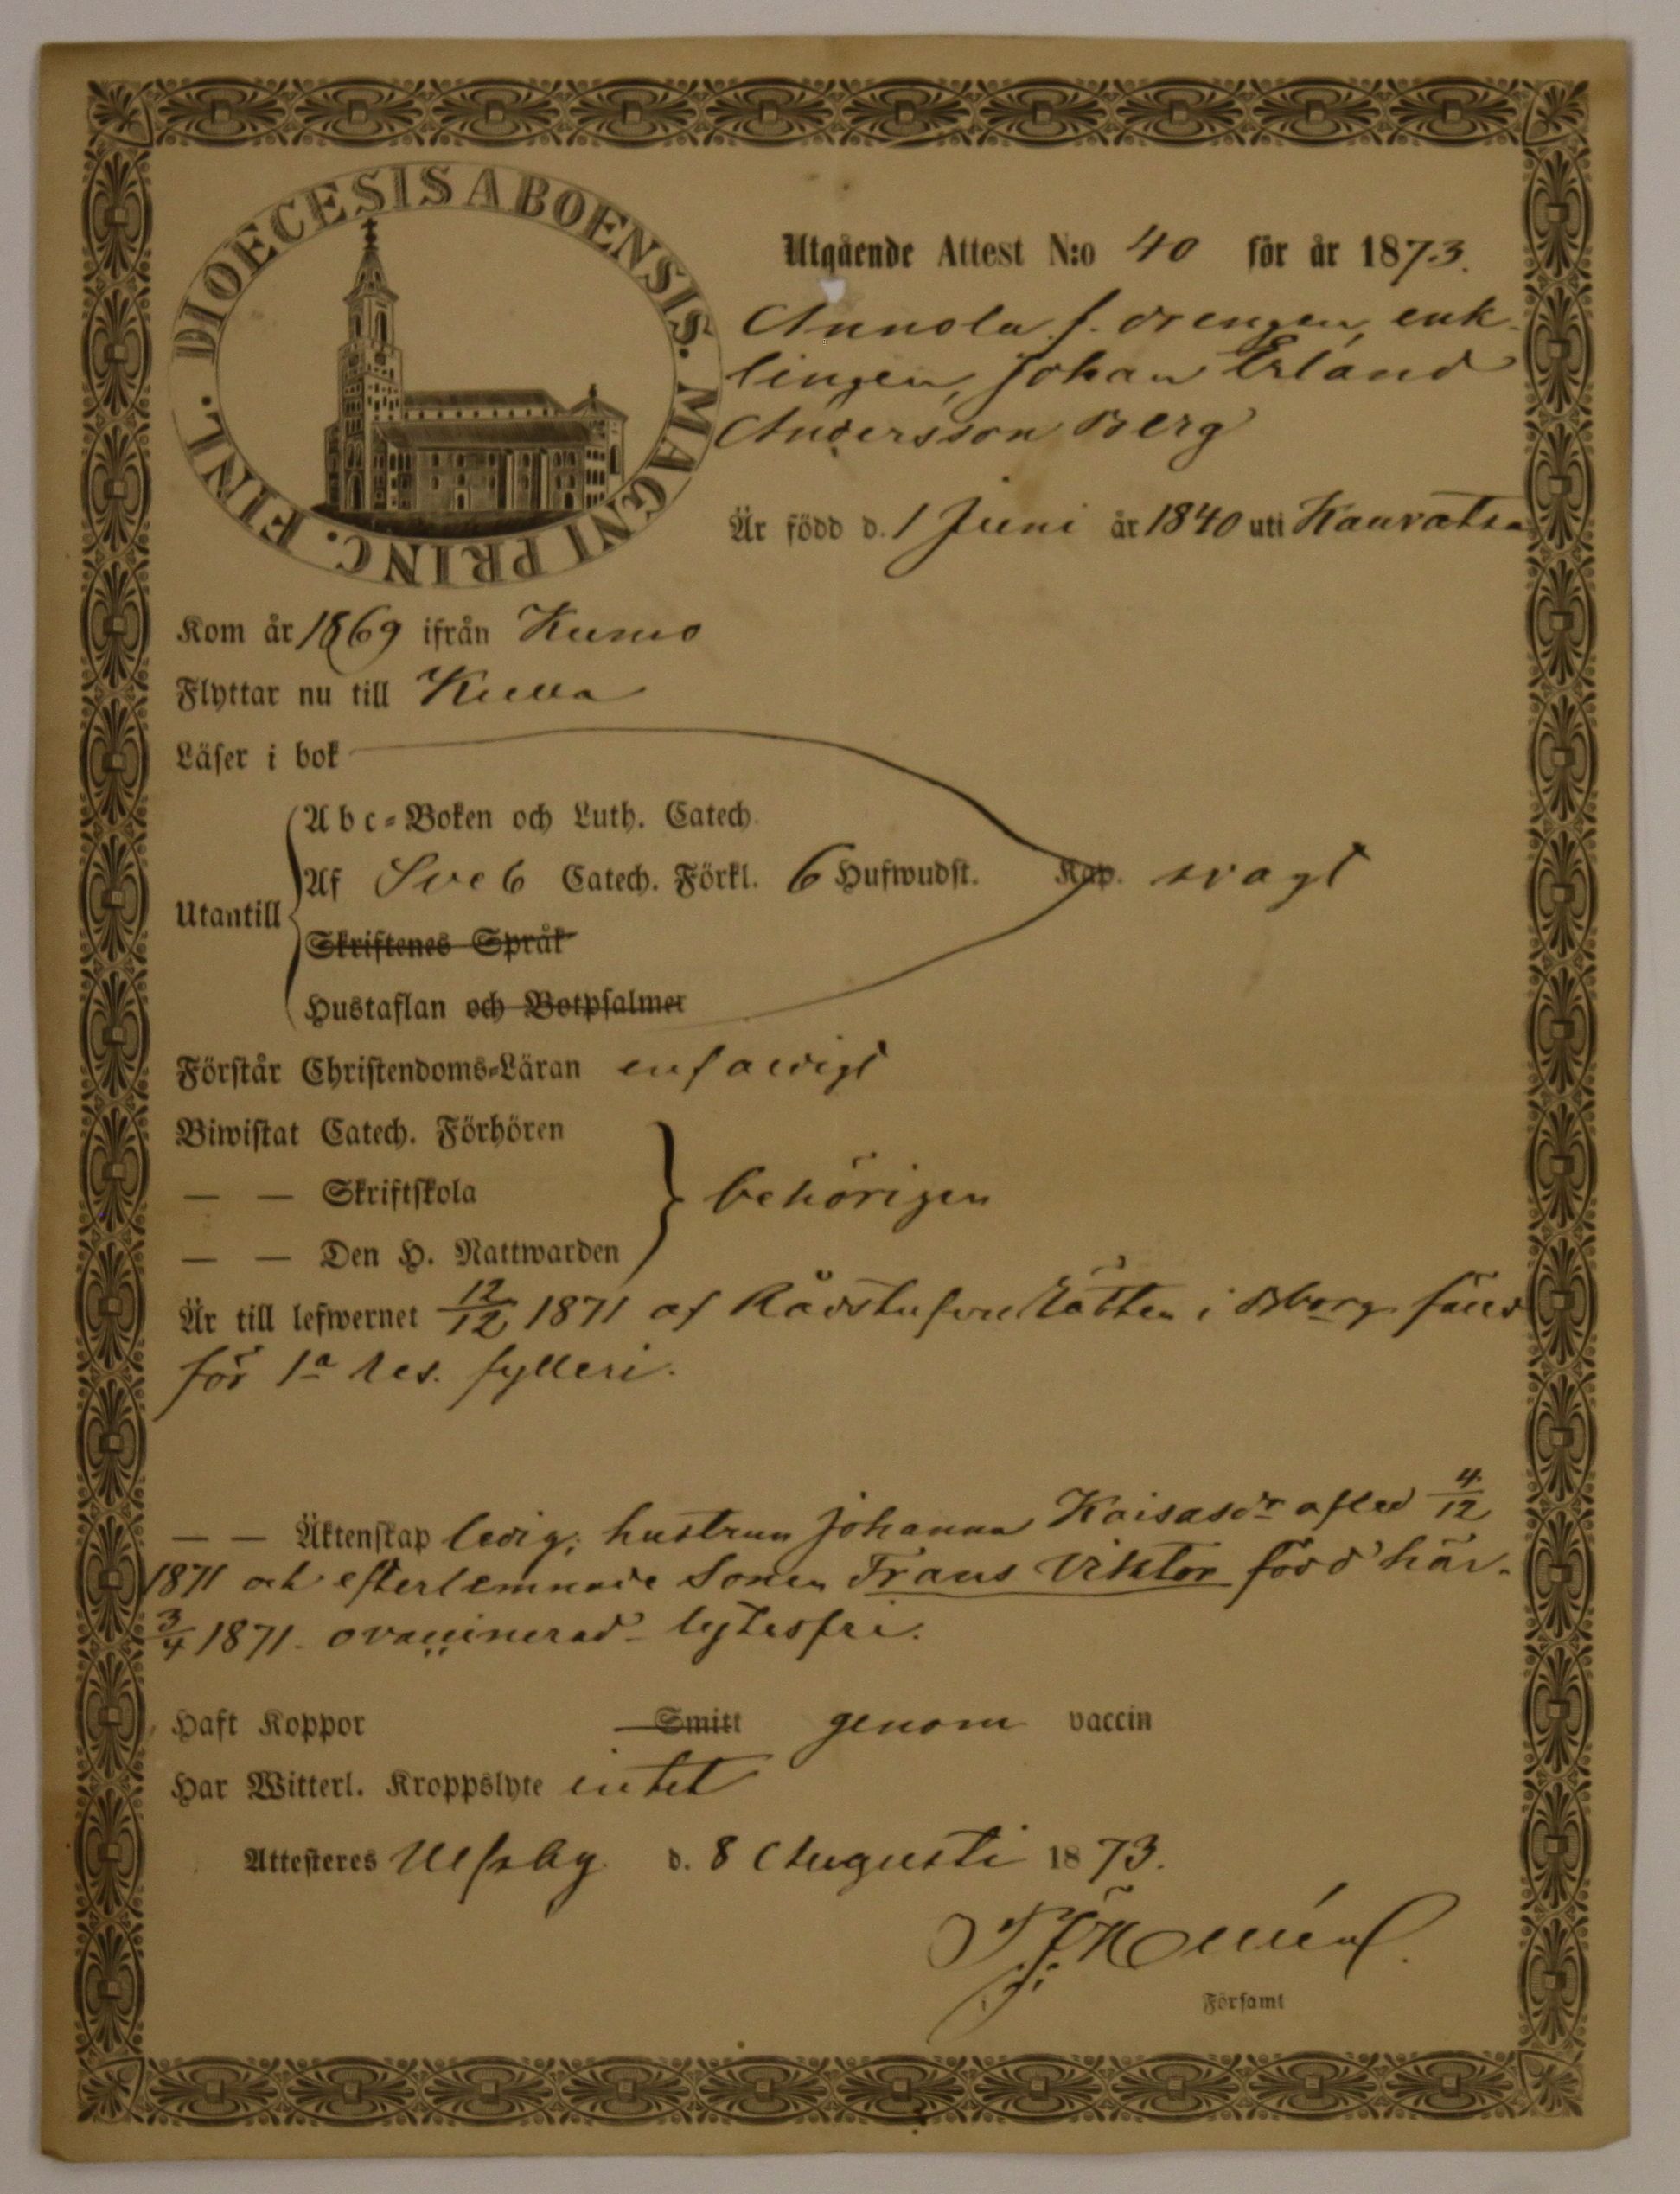 DIOECESIS ABOENSIS. MAGNI PRINC. FINL.
Utgående Attest N:o 40 för år 1873.
Annola f. drengen, enk-
lingen, Johan Erland
Andersson Berg
Är född d. 1 Juni år 1840 uti Kauvatsa
Kom år 1869 ifrån Kumo
Flyttar nu till
Läser i bok
Abc-Boken och Luth. Catech.
Utantill
Af Sveb Catech. Förkl. 6 Hufwudst. Kap. svagt
Skriftenes Språk
Hustaflan och Botpsalmer
Förstår Christendoms-Läran enfaldigt
Biwistat Catech. Förhören
— — Skriftskola behörigen
— — Den H. Nattwarden
Är till lefwernet 12/12 1871 af Rådstufvu Rätten i Bborg fälld
för 1a res. fylleri.
— — Äktenskap ledig; hustrun Johanna Kaisasdr afled 4/12
1871 och efterlemnade Sonen Frans Viktor född här
3/4 1871. ovaccinerad - lytesfri.
Haft Koppor Smitt genom vaccin
Har Witterl. Kroppslyte intet
Attesteres Ulfsby d. 8 Augusti 1873.
Församl